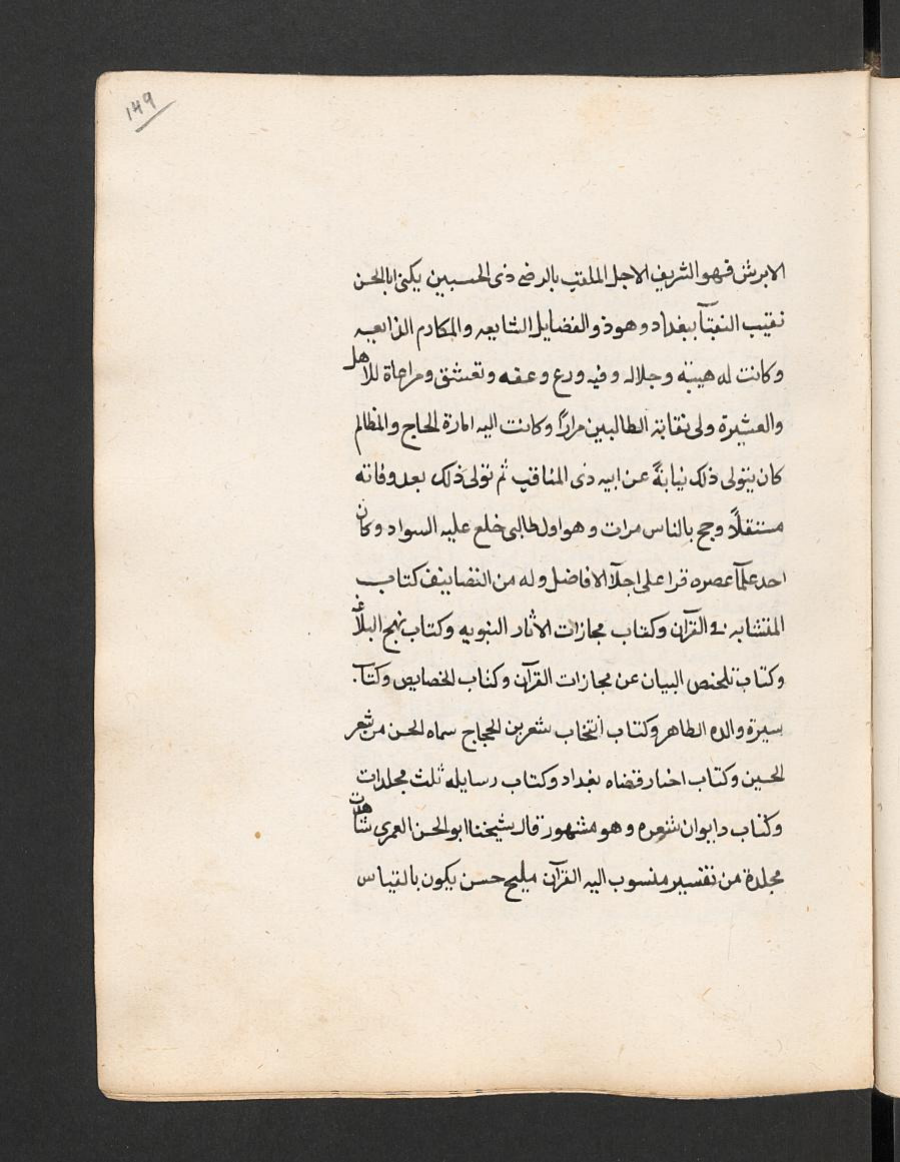 149
الابرش فهو الشريف الاجل الملقب بالرضى ذى الحسبين يكنى ابا الحسن
نقيب النقبآ ببغداد وهو ذو الفضايل الشايعه والمكارم الذايعه
وكانت له هيبة وجلاله وفيه ورع وعفه وتعشق ومراعاة للاهل
والعشيرة ولى نقابة الطالبين مرارًا وكانت اليه امارة الحاج والمظالم
كان يتولى ذلك نيابةً عن ابيه ذى المناقب ثم تولى ذلك بعد وفاته
مستقلًا وحج بالناس مرات وهو اول طالبى خلع عليه السواد وكان
احد علمآ عصره قرا على اجلآ الافاضل وله من التصانيف كتاب
المتشابه فى القرآن وكتاب مجازات الاثار النبويه وكتاب نهج البلاغه
وكتاب تلخيص البيان عن مجازات القرآن وكتاب الخصايص وكتاب
سيرة والده الطاهر وكتاب انتخاب شعر بن الحجاج سماه الحسن من شعر
الحسين وكتاب اخبار قضاه بغداد وكتاب رسايله ثلث مجلدات
وكتاب دايوان شعره وهو مشهور قال شيخنا ابو الحسن العمرى شاهدت
مجلدة من تفسير منسوب اليه القرآن مليح حسن يكون بالقياس